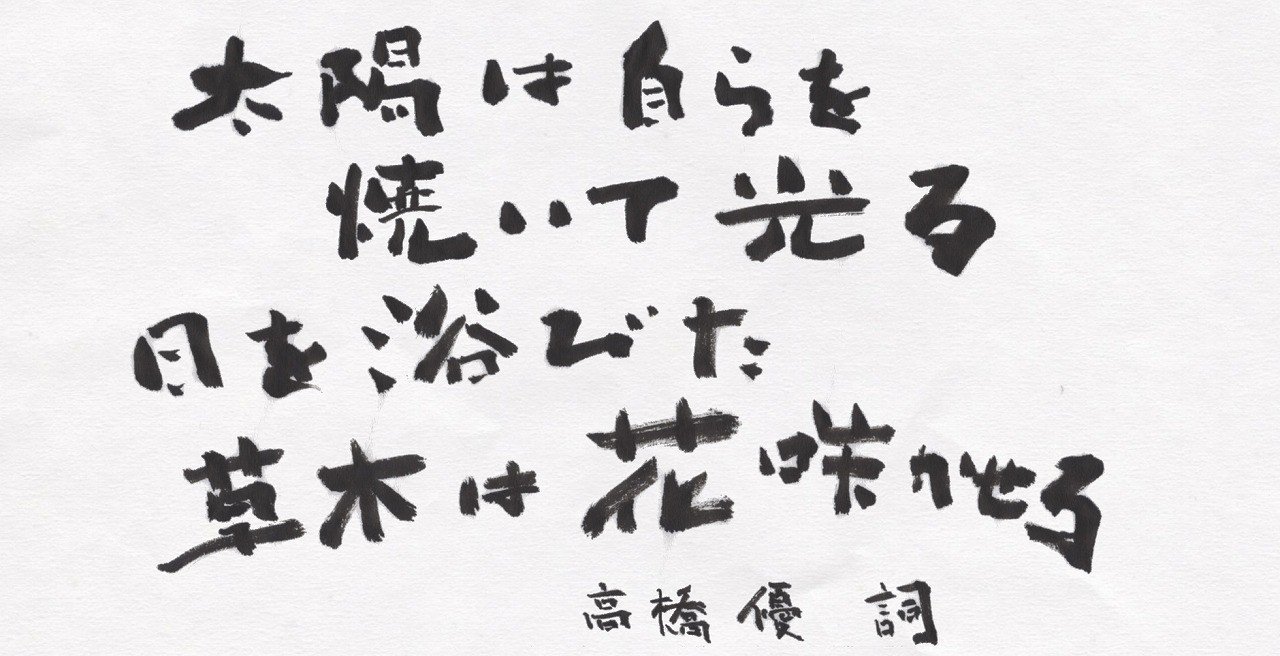 太陽は自らを
焼いて光る
日を浴びた
草木は花咲かせる
高橋優 詞